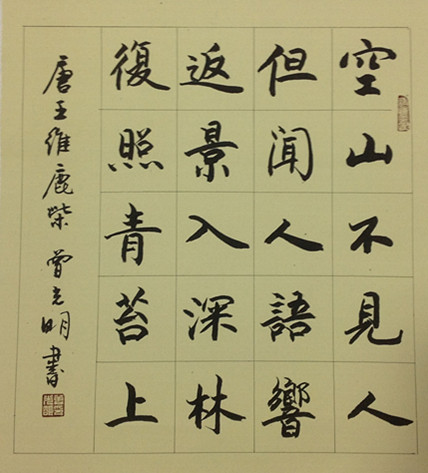 空山不見人
但聞人語響
返景入深林
復照青苔上
唐王維鹿柴 曾光明書